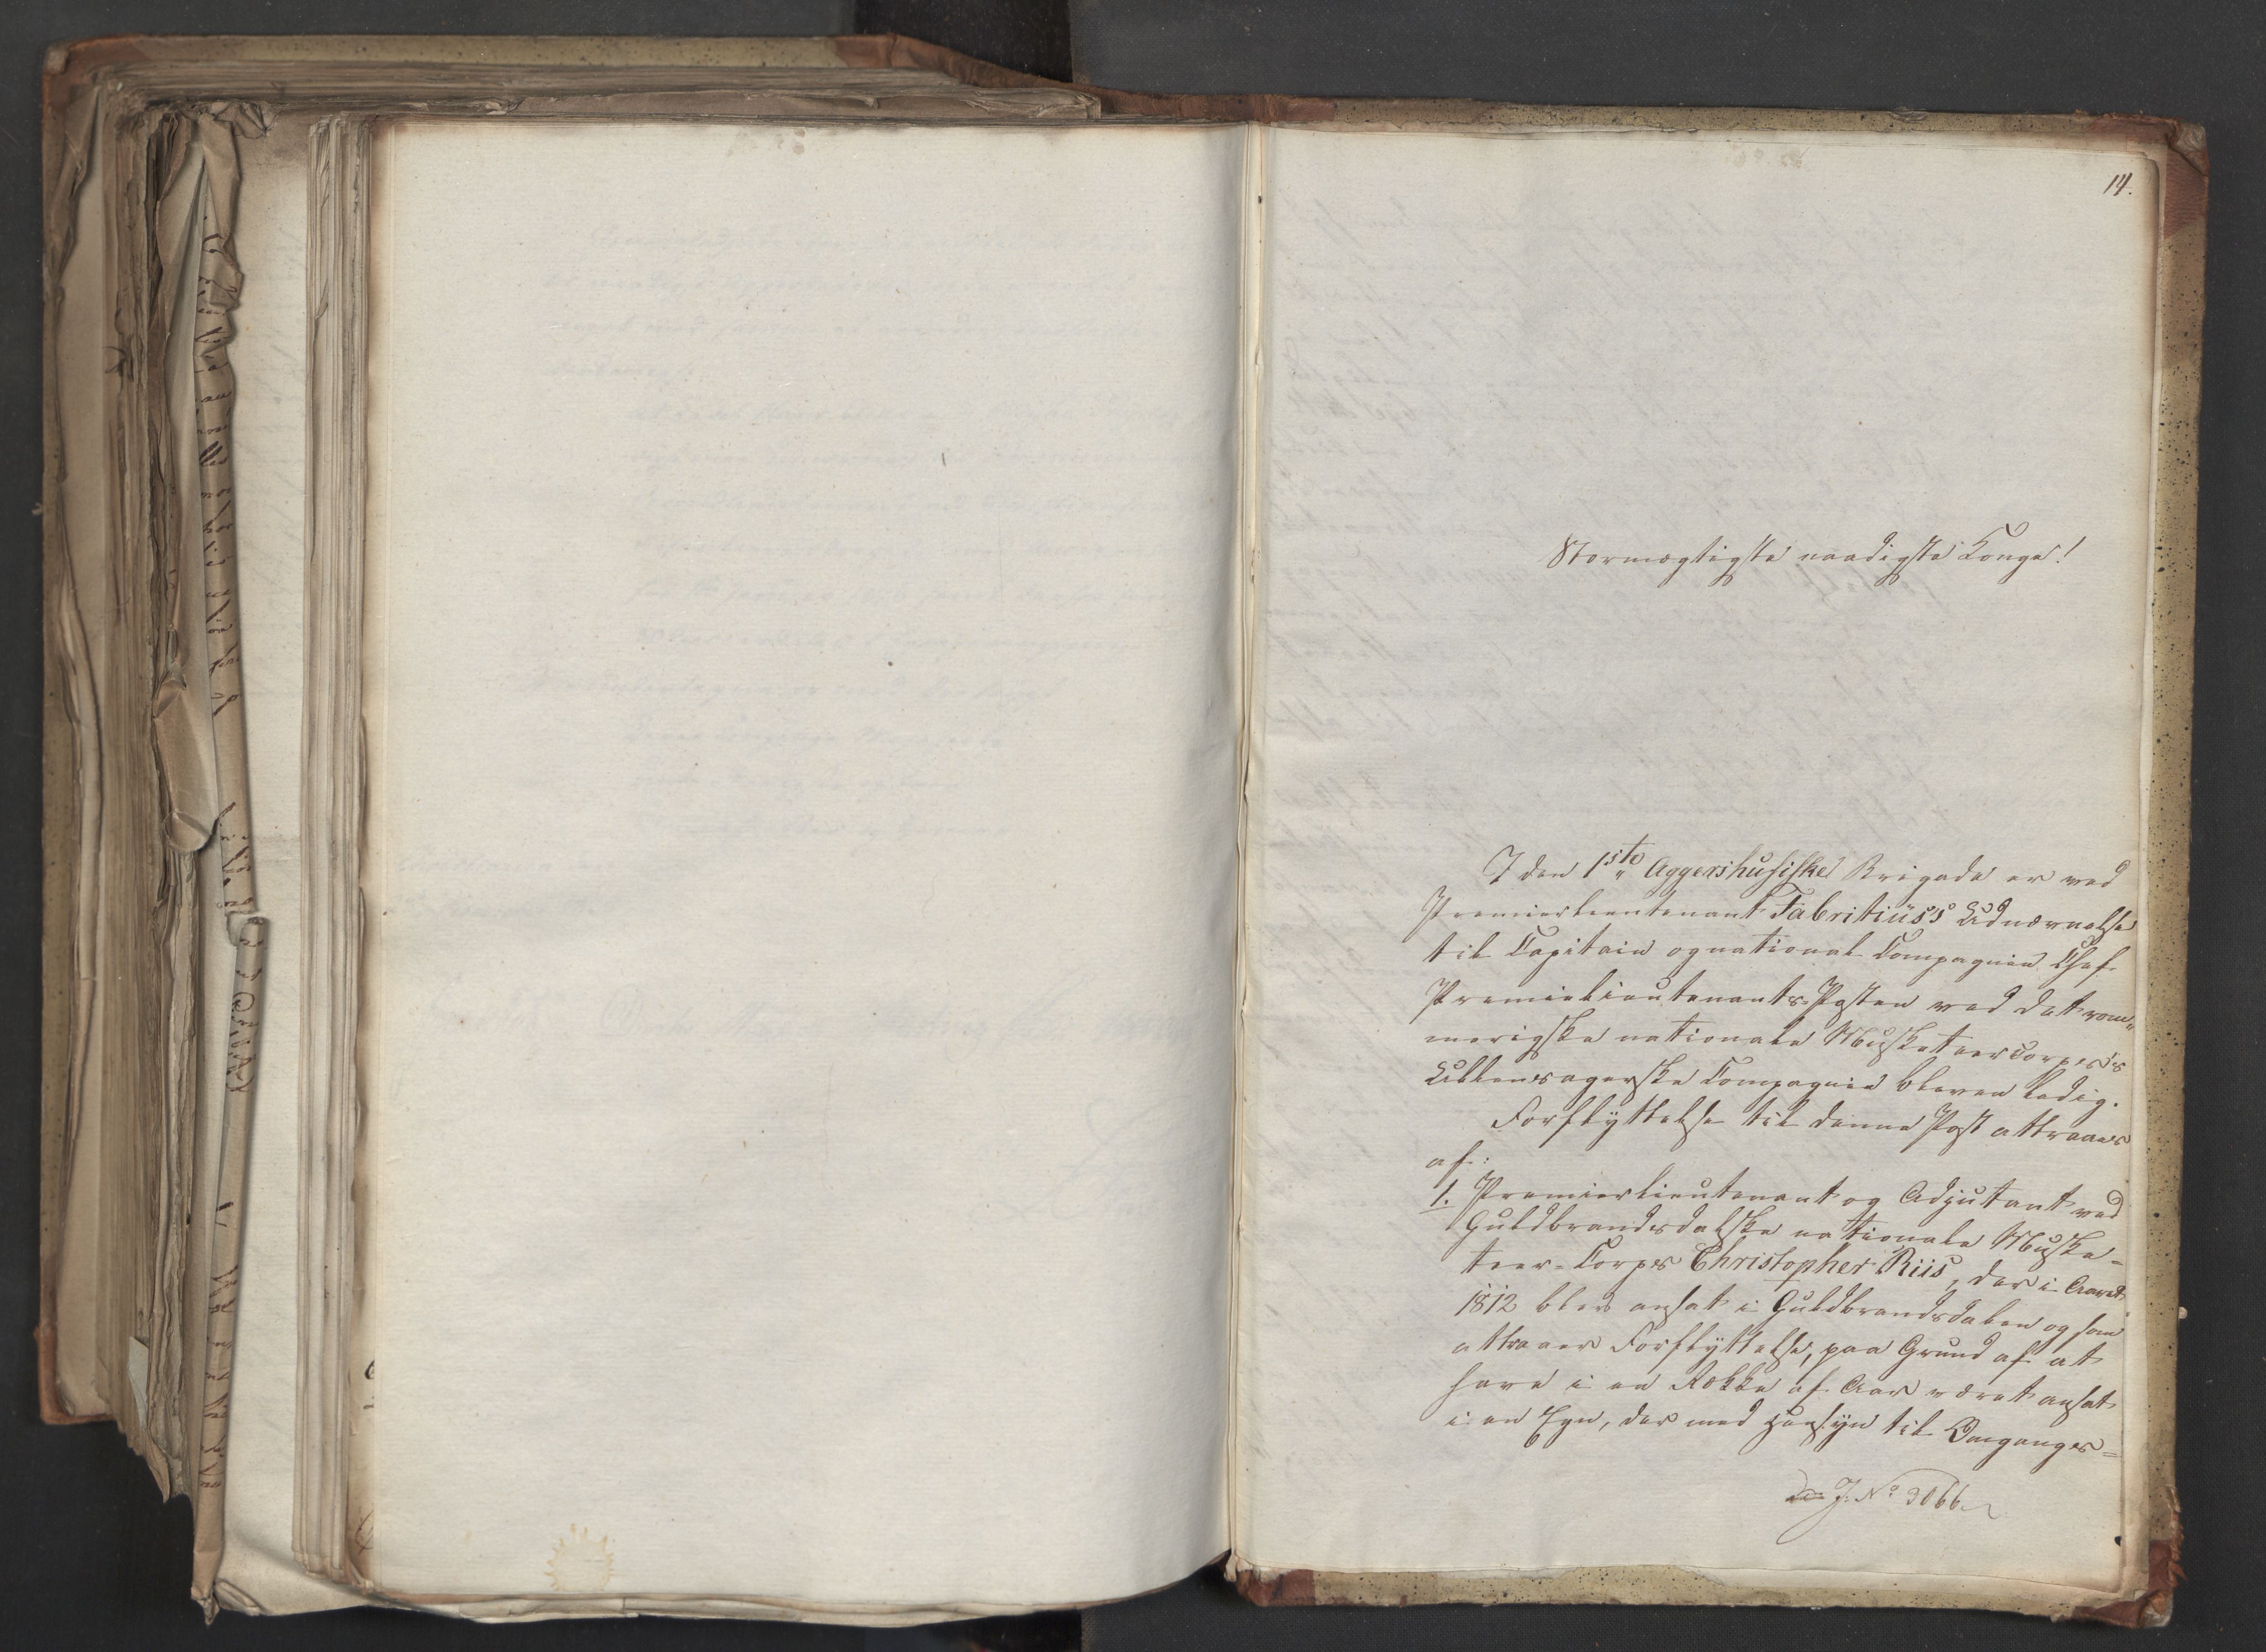 14.
Stormægtigste naadigste Konge!
I den 1ste Aggershusiske Brigade er ved
Premierlieutenant Fabritius's Udnævnelse
til Capitain og national Compagnie Chef
Premierlieutenants-Posten ved det rom„
merigske nationale Musketeercorps's
Ullensagerske Compagnie bleven ledig.
Forflyttelse til denne Post attraaes
af:
1. Premierlieutenant og Adjutant ved
Guldbrandsdalske nationale Muske=
teer-Corps Christopher Riis, der i Aaret
1812 blev ansat i Guldbrandsdalen og som
attraaer Forflyttelse, paa Grund af at
have i en Række af Aar været ansat
i en Egn, der med Hensyn til Omgangs=
J. No 3066